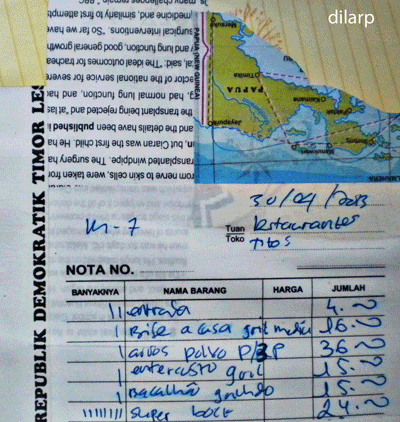 dilarp
REPUBLIK DEMOKRATIK TIMOR LES
is many challenges remain." BBC
medicine and, similarly to first attempt
surgical interventions. "So far we have
y and lung function, good general growth
cal, said: "The ideal outcomes for trachea
ector of the national service for severe
g, had normal lung function, and ha
the transplant being rejected and "at las
and the details have been published i
n, but Ciaran was the first child. He ha
transplanted windpipe. The surgery ha
rom nerve to skin cells, were taken from
PAPUA (NEW GUINEA)
Merauke
PAPUA
Timika
Kaimana
Fakfak
Jayapura
Manokwari
30/04/2013
M-7
Tuan
Toko
Restaurantes
Titos
NOTA NO.
BANYAKNYA NAMA BARANG HARGA JUMLAH
11 entrada 4.~
1 Bife a casa grel media 16.~
1 arros polvo P/3P 36~
1 entrecosto grel 15.~
1 Bacalhau grelhado 15.~
super bock 24.~